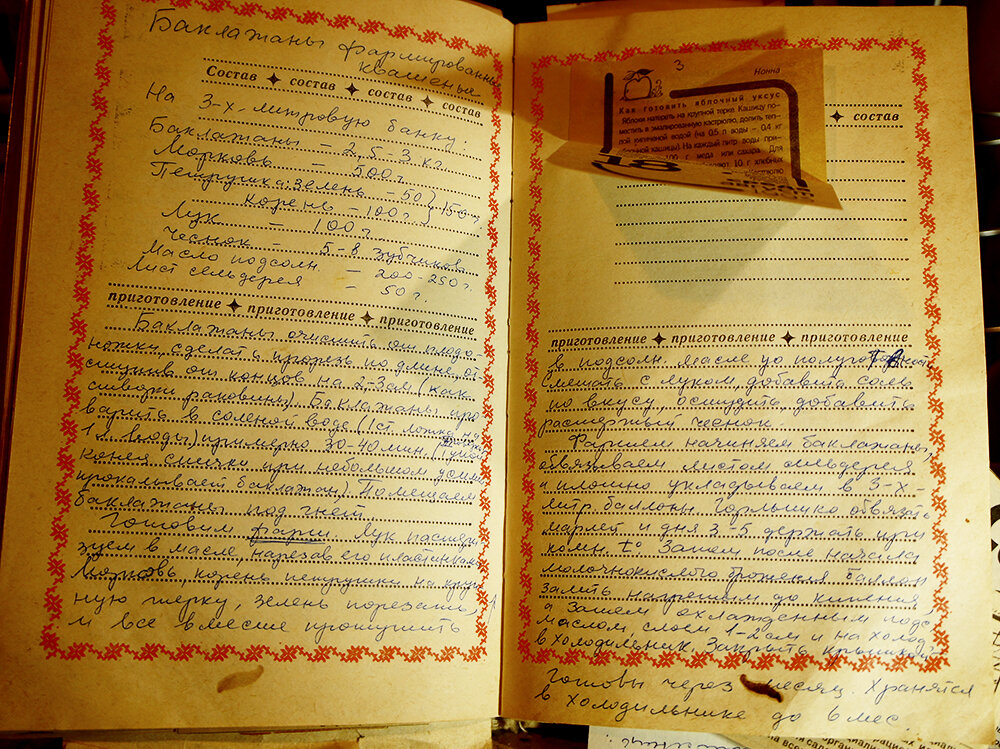 Баклажаны фармированные
квашенья
Состав ✦ состав ✦ состав ✦ состав
На 3-х литровую банку:
Баклажаны – 2,5-3 кг.
Морковь 500 г.
Петрушка: зелень – 50 } 150 г
корень – 100 г.
Лук – 100 г
Чеснок – 5-8 зубчиков
Масло подсолн – 200-250 г.
Лист сельдерея – 50 г.
приготовление ✦ приготовление ✦ приготовление
Баклажаны очистить от плодо-
ножки, сделать прорезь по длине, от-
ступив от концов на 2-3 см (как
створки раковины). Баклажаны про
варить в соленой воде (1 ст. ложка на
1 л воды) примерно 30-40 мин.
конец спички при небольшом усилии
прокалывает баклажан). Помещаем
баклажаны под гнет
Готовим фарш. Лук пассеру
зуем в масле, нарезав его пластинками
Морковь, корень петрушки на круп
ную терку, зелень порезать,
и все вместе протушить
3
Нонна
Как готовить яблочный уксус
Яблоки натереть на крупной терке. Кашицу по-
местить в эмалированную кастрюлю, долить теп-
лой кипяченой водой (на 0,5 л воды – 0,4 кг
кашицы). На каждый литр воды при-
100 г меда или сахара. Для
10 г хлебных
✦ состав
приготовление ✦ приготовление ✦ приготовление
в подсолн. масле до
смешать с луком, добавить соль
по вкусу, остудить добавить
растертый чеснок.
Фаршем начиняем баклажаны,
обвязываем листом сельдерея
и плотно укладываем в 3-х-
литр баллоны. Горлышко обвязать
марлей и дня 3-5 держать при
комн. t° Затем после начала
молочнокислого брожения баллон
залить нагретым до кипения,
а затем охлажденным подс
маслом, слоем 1-2 см и на холод
в холодильник. Закрыть крышкой
Готовы через месяц. Хранятся
в холодильнике до 6 мес